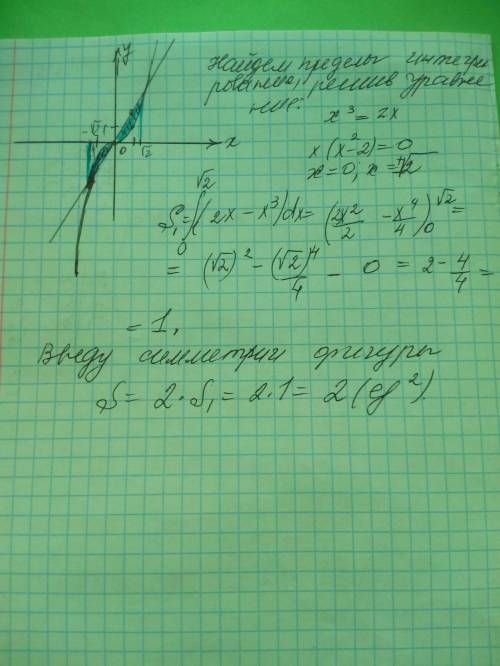 y
Найдем пределы интегри
рования, решив уравне
ние:
x³ = 2x
x(x²-2)=0
x=0; x=±√2
-√2 1 0 √2 x
S₁=∫₀^√2(2x-x³)dx=(2x²/2-x⁴/4)₀^√2=
=(√2)²-(√2)⁴/4-0=2-4/4=
=1.
Ввиду симметрии фигуры
S=2·S₁=2·1=2(ед²)